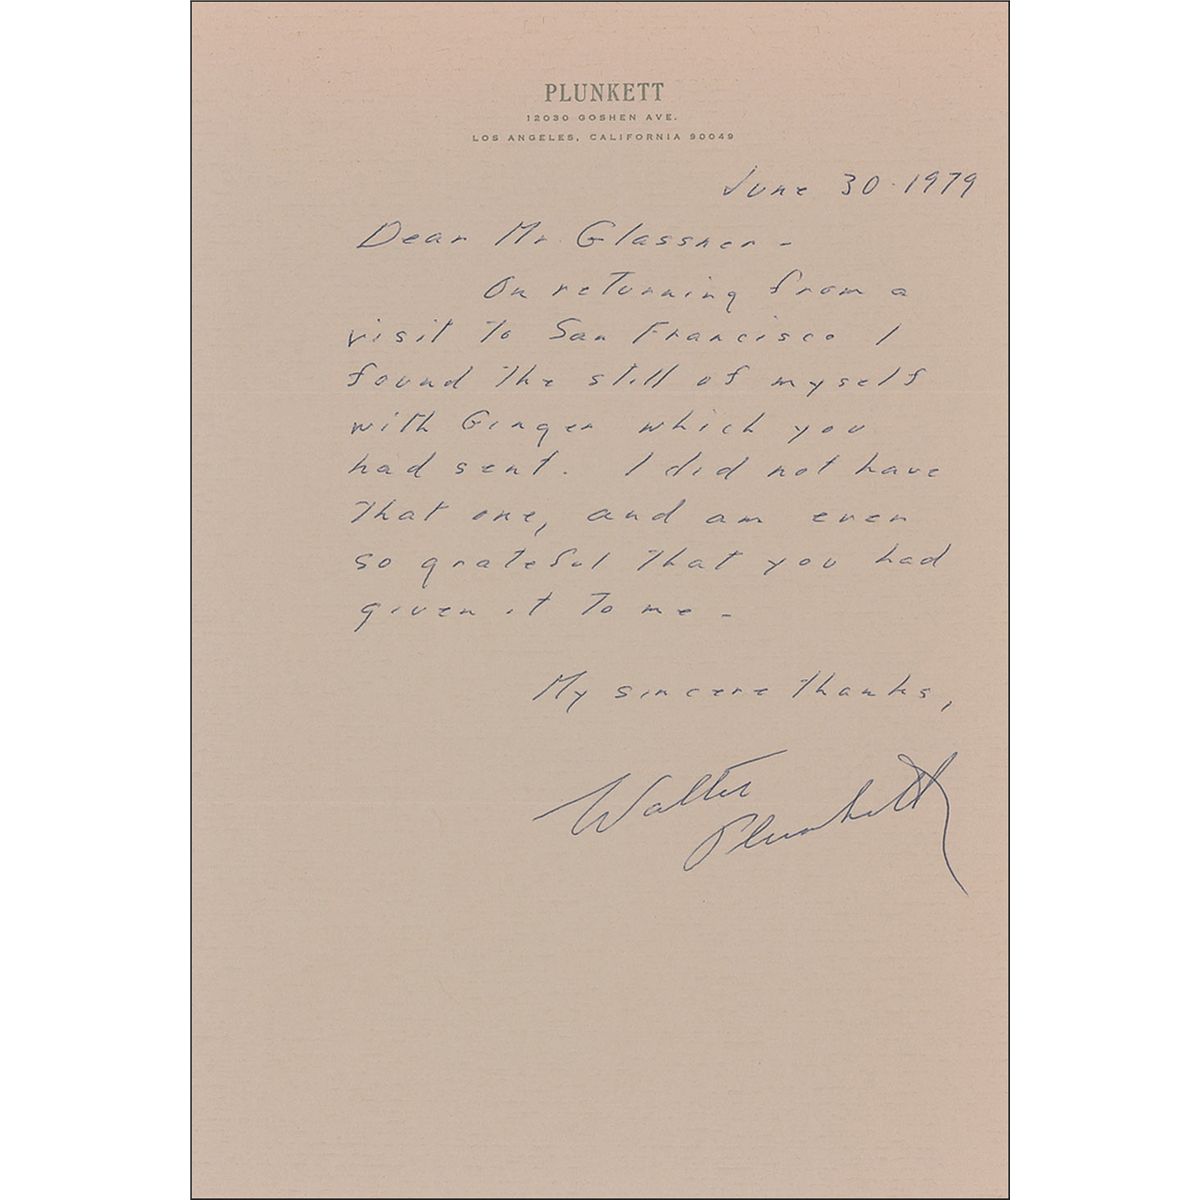 PLUNKETT
12030 GOSHEN AVE.
LOS ANGELES, CALIFORNIA 90049
June 30. 1979
Dear Mr. Glassner -
On returning from a
visit to San Francisco I
found the still of myself
with Ginger which you
had sent. I did not have
that one, and am ever
so grateful that you had
given it to me -
My sincere thanks,
Walter
Plunkett